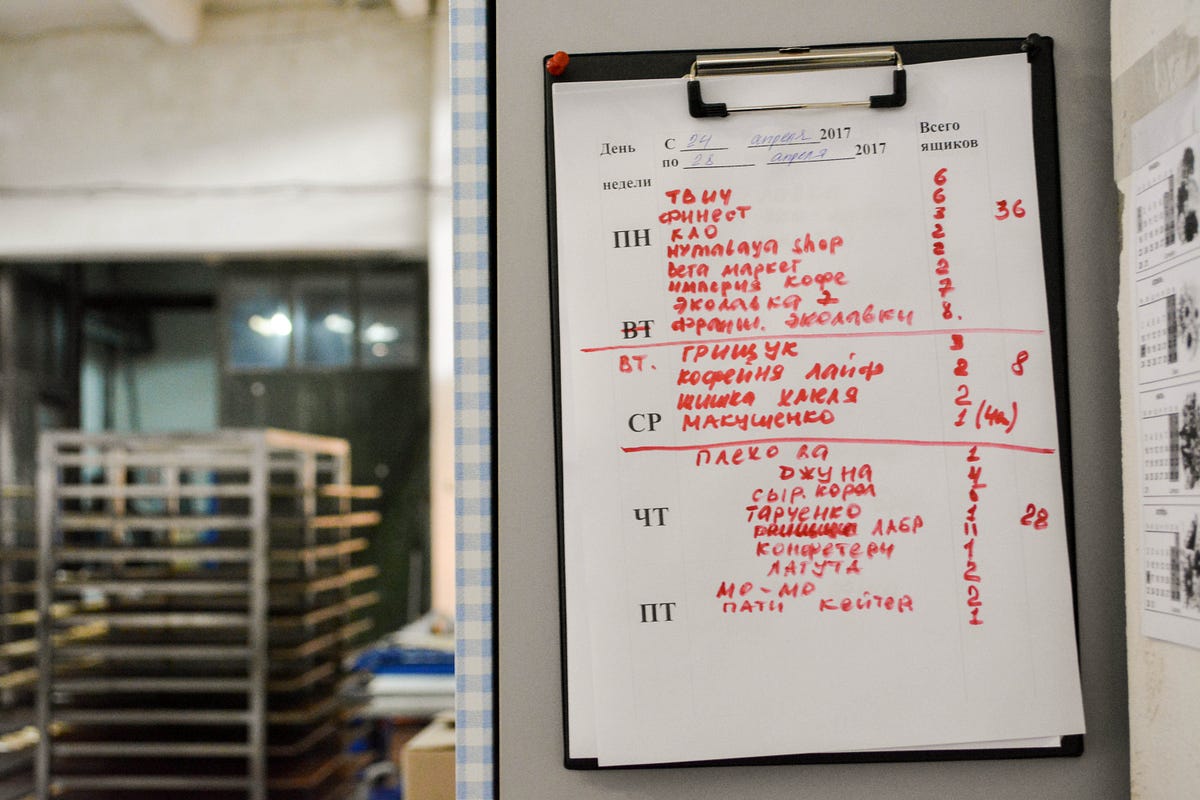 День С 24 апреля 2017 Всего
по 28 апреля 2017 ящиков
недели
ТВИЧ 6
ФИНЕСТ 6
КЛО 3 36
ПН
Hymalaya shop 2
Вета маркет 2
империя кофе 2
эколавка 7
ВТ франш. эколавки 8.
ВТ. ГРИЩУК 3
кофейня лайф 2 8
шишка хмеля 2
СР МАКУШЕНКО 1 (4м)
плеко
ДЖУНА 4
сыр. корол
ЧТ ТАРЧЕНКО 1 28
ЛАБР 11
конфетери 1
ЛАГУТА 2
МО-МО 2
ПТ ПАТИ кейтер 1